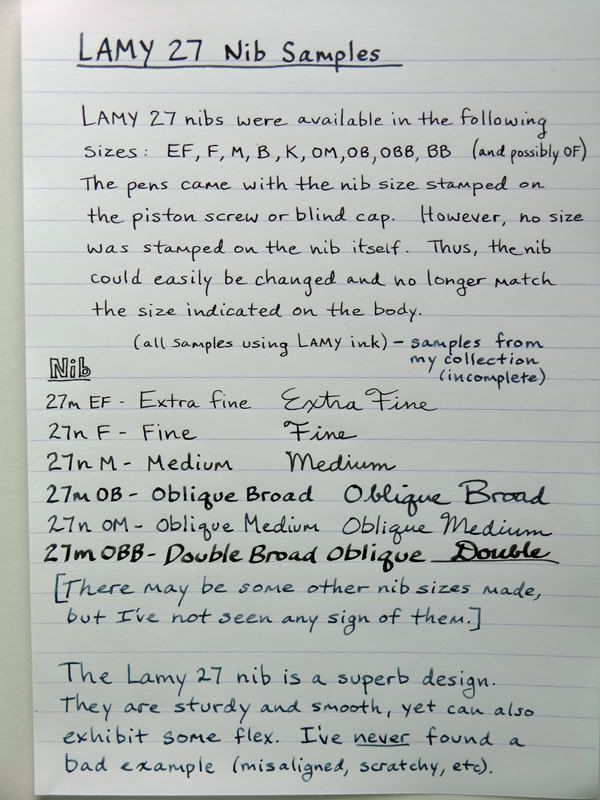 LAMY 27 Nib Samples
LAMY 27 nibs were available in the following
sizes: EF, F, M, B, K, OM, OB, OBB, BB (and possibly OF)
The pens came with the nib size stamped on
the piston screw or blind cap. However, no size
was stamped on the nib itself. Thus, the nib
could easily be changed and no longer match
the size indicated on the body.
(all samples using LAMY ink) – samples from
my collection
(incomplete)
Nib
27m EF - Extra fine Extra Fine
27n F - Fine Fine
27n M - Medium Medium
27m OB - Oblique Broad Oblique Broad
27n OM - Oblique Medium Oblique Medium
27m OBB - Double Broad Oblique Double
[There may be some other nib sizes made,
but I've not seen any sign of them.]
The Lamy 27 nib is a superb design.
They are sturdy and smooth, yet can also
exhibit some flex. I've never found a
bad example (misaligned, scratchy, etc).